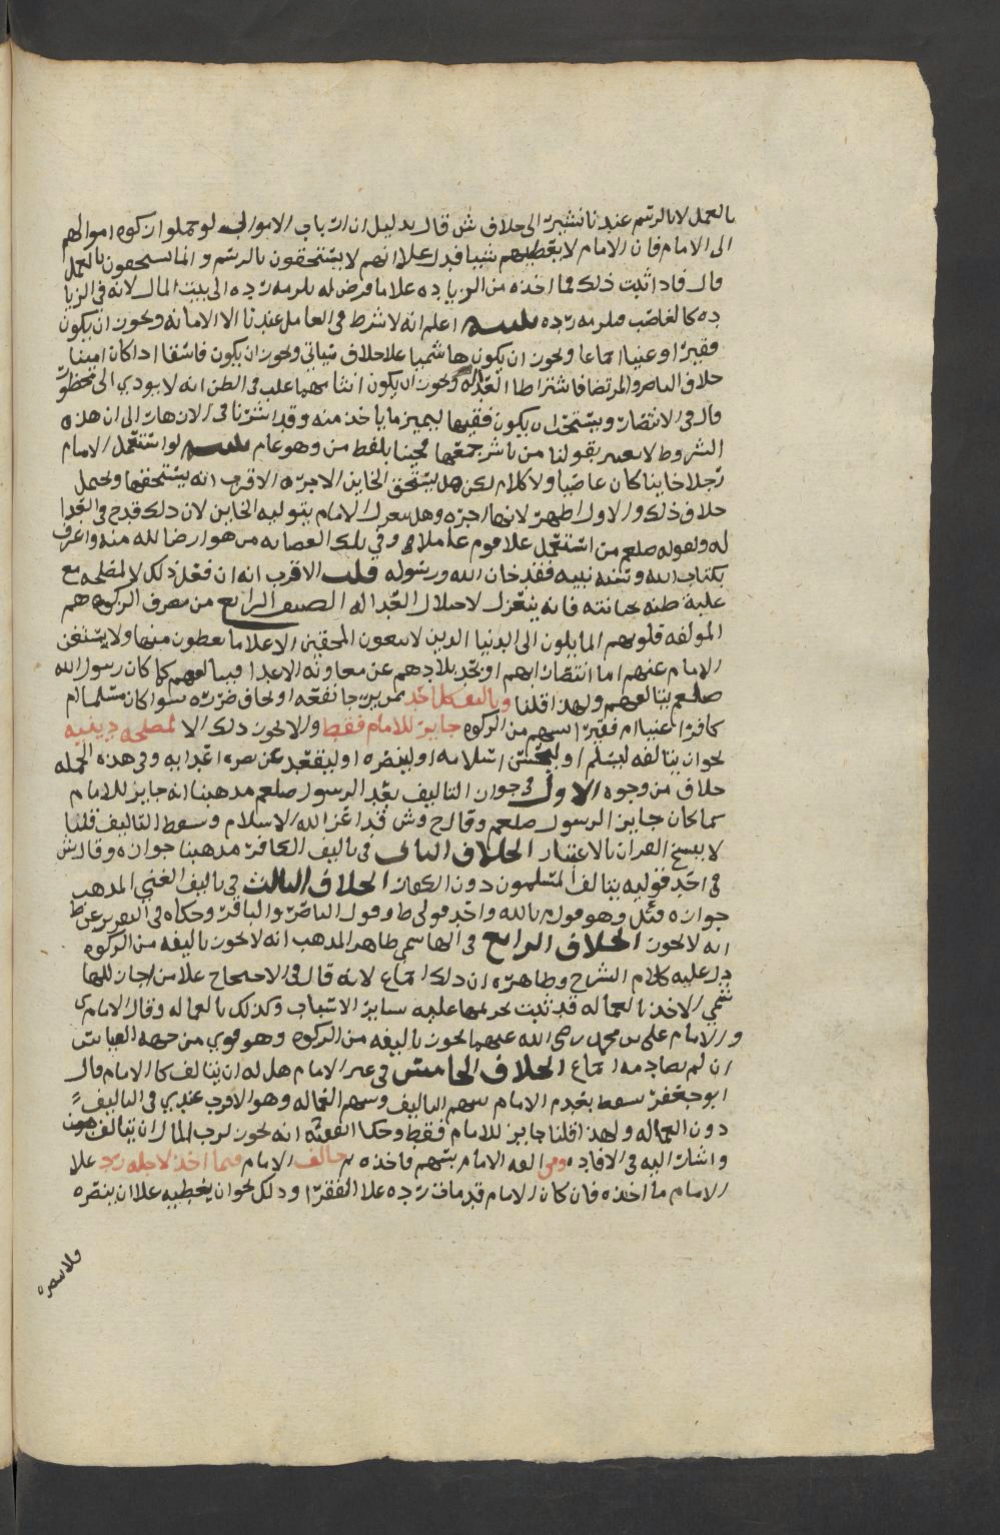 بالعمل لا بالرسم عندنا نشير الى خلاف ش قال بدليل ان ارباب الاموال لو حملوا زكوة اموالهم
الى الامام فان الامام لا يعطيهم شيا فدل علا انهم لا يستحقون بالرسم وانما يستحقون بالعمل
قال فاذا ثبت ذلك فما اخذه من الزياده علا ما فرض له يلزمه رده الى بيت المال لانه في الزيا
ده كالغاصب فلزمه رده تنبيه اعلم انه لا شرط في العامل عندنا الا الامانه ويجوز ان يكون
فقيرا او غنيا اجماعا ويجوز ان يكون هاشميا علا خلاف سياتي ويجوز ان يكون فاسقا اذا كان امينا
خلاف الناصر والمرتضا فاشترطا العداله ويجوز ان يكون انثا مهما غلب في الظن انه لا يودي الى محظور
قال في الانتصار ويستحب ان يكون فقيها ليميز ما ياخذ منه وقد اشرنا في الازهار الى ان هذه
الشروط لا تعتبر بقولنا من باشر جمعها مجيبا بلفظ من وهو عام تنبيه لو استعمل الامام
رجلا خاينا كان عاصيا ولا كلام لكن هل يستحق الخاين الاجره الاقرب انه يستحقها ويحتمل
خلاف ذلك والاول اظهر لانها اجره وهل ينعزل الامام بتوليه الخاين لان ذلك قدح في العدا
له ولقوله صلعم من استعمل علا قوم عاملا وفي تلك العصابه من هو ارضا لله منه واعرف
بكتاب الله وسنه نبيه فقد خان الله ورسوله قلت الاقرب انه ان فعل ذلك لا لمصلحه مع
غلبة ظنه بخيانته فانه ينعزل لاختلال العداله الصنف الرابع من مصرف الزكوه هم
المولفه قلوبهم المايلون الى الدنيا الذين لا يتبعون المحقين الا علا ما يعطون منها ولا يستغني
الامام عنهم اما انتصارا بهم او تخذيلا لهم عن معاونه الاعدا فيتالفهم كما كان رسول الله
صلعم يتالفهم ولهذا قلنا وتاليف كل احد ممن يرجا نفعه او يخاف ضرره سوا كان مسلما ام
كافرا غنيا ام فقيرا اسهم من الزكوه جايز للامام فقط ولا يجوز ذلك الا لمصلحه دينيه
نحو ان يتالفه ليسلم او ليحسن اسلامه او لينصره او ليقعد عن نصره اعدايه وفي هذه الجمله
خلاف من وجوه الاول في جواز التاليف بعد الرسول صلعم مذهبنا انه جايز للامام
كما كان جايز الرسول صلعم وقال ح وش قد اعز الله الاسلام وسقط التاليف قلنا
لا ينسخ القران بالاعتبار الخلاف الثاني في تاليف الكافر مذهبنا جوازه وقال ش
في احد قوليه يتالف المسلمون دون الكفار الخلاف الثالث في تاليف الغني المذهب
جوازه وهو قول م بالله واحد قولي ط وقول الناصر والباقر وحكاه في التقرير عن ط
انه لا يجوز الخلاف الرابع في الهاشمي ظاهر المذهب انه لا يجوز تاليفه من الزكوه
دل عليه كلام الشرح وظاهره ان ذلك اجماع لانه قال في الاحتجاج علا من اجاز للها
شمي الاخذ بالعماله قد ثبت تحريمها عليه ساير الاسباب وكذلك بالعماله وقال الامام ى
والامام علي بن محمد رضي الله عنهما يجوز تاليفه من الزكوه وهو قوي من جهه القياس
ان لم يصادمه اجماع الخلاف الخامس في غير الامام هل له ان يتالف كالامام قال
ابو جعفر سقط بعدم الامام سهم التاليف وسهم العماله وهو الاقرب عندي في التاليف
دون العماله ولهذا قلنا جايز للامام فقط وحكا الفقيه انه يجوز لرب المال ان يتالف
واشار اليه في الافاده ومن الفه الامام بسهم فاخذه ثم خالف الامام فيما اخذ لاجله رد علا
الامام ما اخذه فان كان الامام قد مات رده علا الفقرا وذلك نحو ان يعطيه علا ان ينصره
ولا ينصره